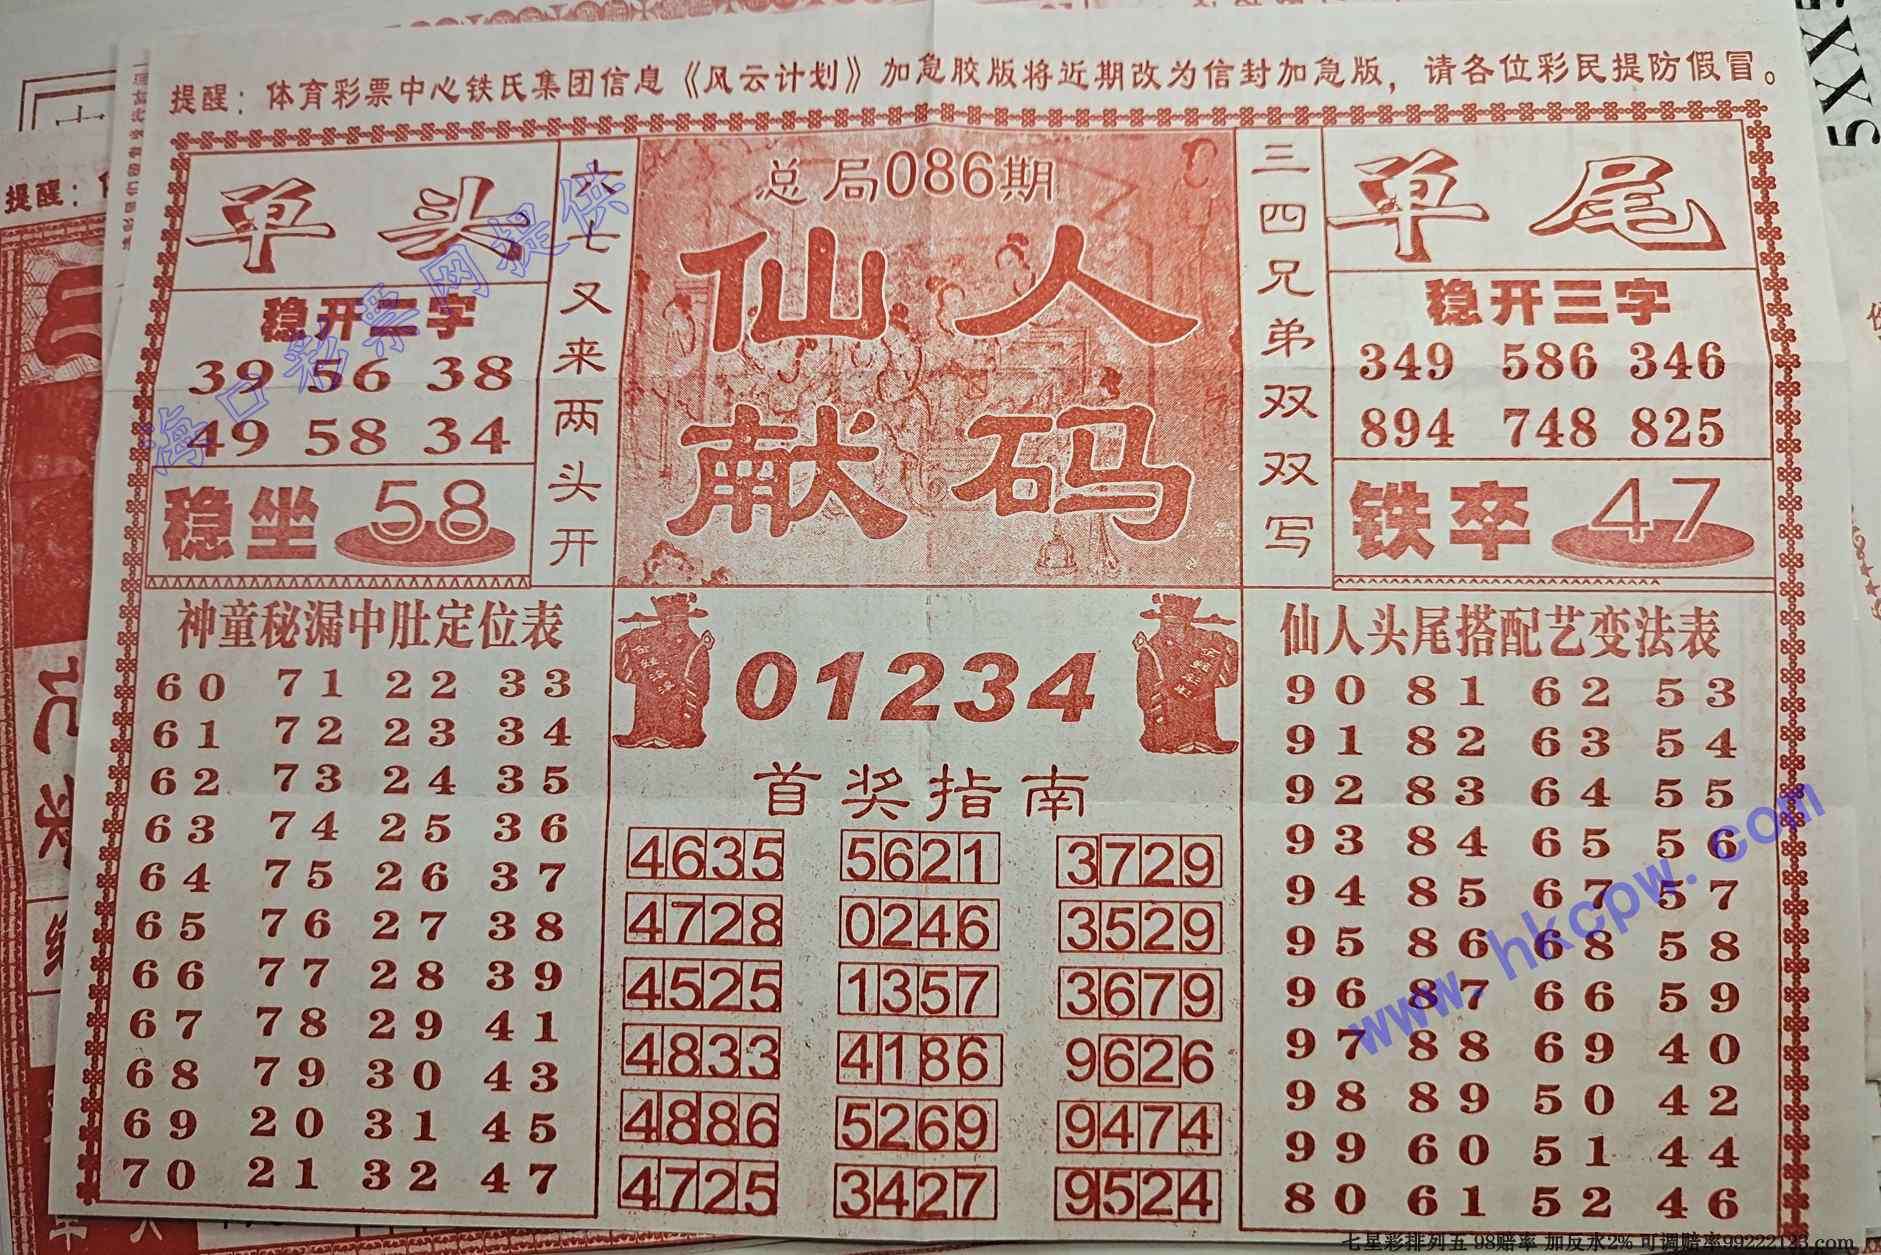 提醒：体育彩票中心铁氏集团信息《风云计划》加急胶版将近期改为信封加急版，请各位彩民提防假冒。
单头
稳开二字
39 56 38
49 58 34
稳坐 58
六七又来两头开
总局086期
仙人
献码
三四兄弟双双写
单尾
稳开三字
349 586 346
894 748 825
铁卒 47
神童秘漏中肚定位表
60 71 22 33
61 72 23 34
62 73 24 35
63 74 25 36
64 75 26 37
65 76 27 38
66 77 28 39
67 78 29 41
68 79 30 43
69 20 31 45
70 21 32 47
01234
首奖指南
4635 5621 3729
4728 0246 3529
4525 1357 3679
4833 4186 9626
4886 5269 9474
4725 3427 9524
仙人头尾搭配艺变法表
90 81 62 53
91 82 63 54
92 83 64 55
93 84 65 56
94 85 67 57
95 86 68 58
96 87 66 59
97 88 69 40
98 89 50 42
99 60 51 44
80 61 52 46
海口彩票网提供
www.hkcpw.com
七星彩排列五 98赔率 加反水2% 可调赔率99222123.com
提醒：